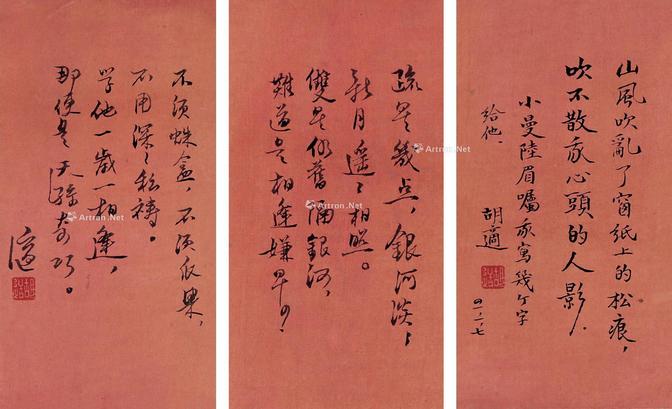 山風吹亂了窗紙上的松痕，
吹不散我心頭的人影。
小曼陸眉囑我寫幾个字
給他.
胡適
疏星幾点，銀河淡淡，
新月遥遥相照。
雙星仍舊隔銀河，
難道是相逢嫌早？
不須蛛盒，不須瓜果，
不用深深私禱。
学他一歲一相逢，
那便是天孫奇巧。
適
Artron.Net
Artron.Net
Artron.Net
Artron.Net